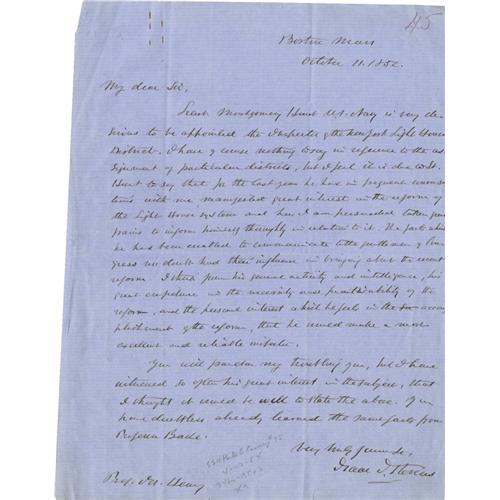 45
Boston Mass
October 11. 1852.
My dear Sir,
Lieut. Montgomery Hunt U.S. Navy is very de-
sirous to be appointed the Inspector of the Newport Light House
District. I have of course nothing to say in reference to the as-
signment of particular districts, but I feel it is due to Lt.
Hunt to say that for the last year he has in frequent conversa-
tions with me manifested great interest in the reform of
the Light House System and has I am persuaded taken great
pains to inform himself thoroughly in relation to it. The facts which
he has been enabled to communicate to the gentlemen of Con-
gress no doubt had their influence in bringing about the recent
reform. I think from his general activity and intelligence, his
great confidence in the necessity and practicability of the
reform, and the personal interest which he feels in the accom-
plishment of the reform, that he would make a most
excellent and reliable inspector.
You will pardon my troubling you, but I have
witnessed so often his great interest in the subject, that
I thought it would be well to state the above. You
have doubtless already learned the same facts from
Professor Bache.
Very truly yours,
Isaac I. Stevens
Prof. Jos. Henry